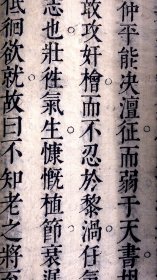 仲平能决澶征而弱于天書
敢攻奸檜而不忍於黎渦任氣
志也壯徃氣生慷慨植節衰遲
低徊欲就故曰不知老之將至